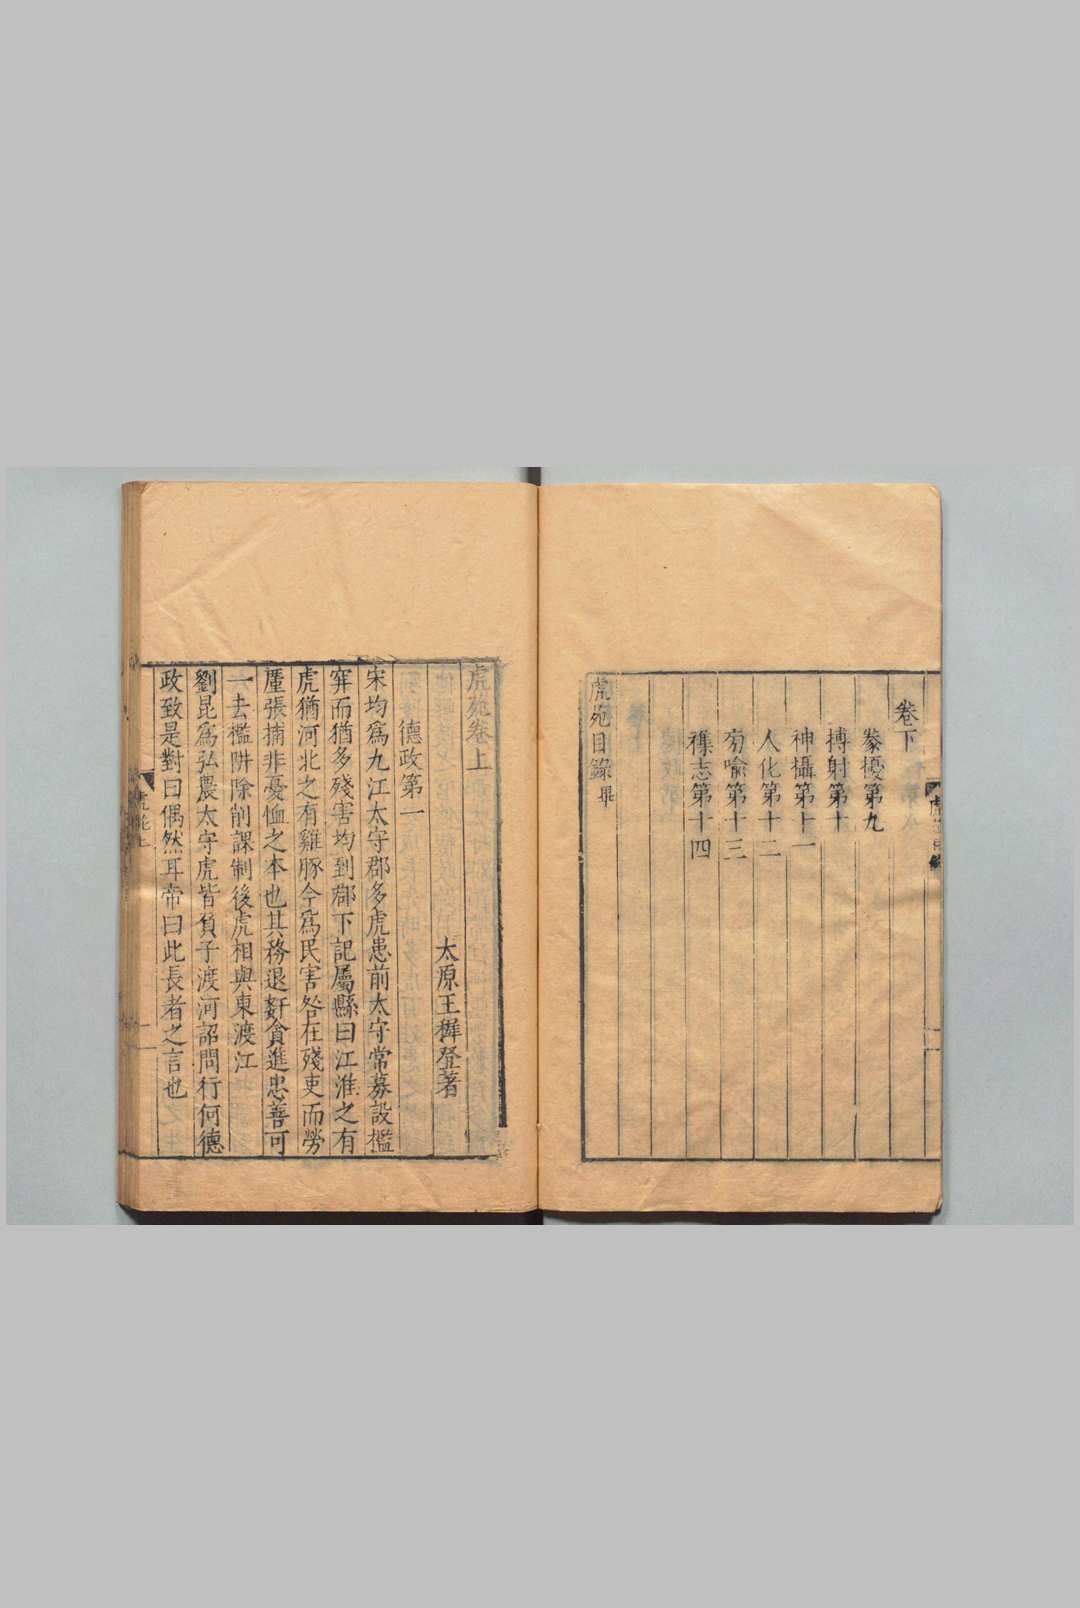 卷下
豢擾第九
搏射第十
神攝第十一
人化第十二
旁喻第十三
襍志第十四
虎苑目錄畢
虎苑卷上
太原王穉登著
德政第一
宋均爲九江太守郡多虎患前太守常募設檻
穽而猶多殘害均到郡下記屬縣曰江淮之有
虎猶河北之有雞豚今爲民害咎在殘吏而勞
厪張捕非憂恤之本也其務退姧貪進忠善可
一去檻阱除削課制後虎相與東渡江
劉昆爲弘農太守虎皆負子渡河詔問行何德
政致是對曰偶然耳帝曰此長者之言也